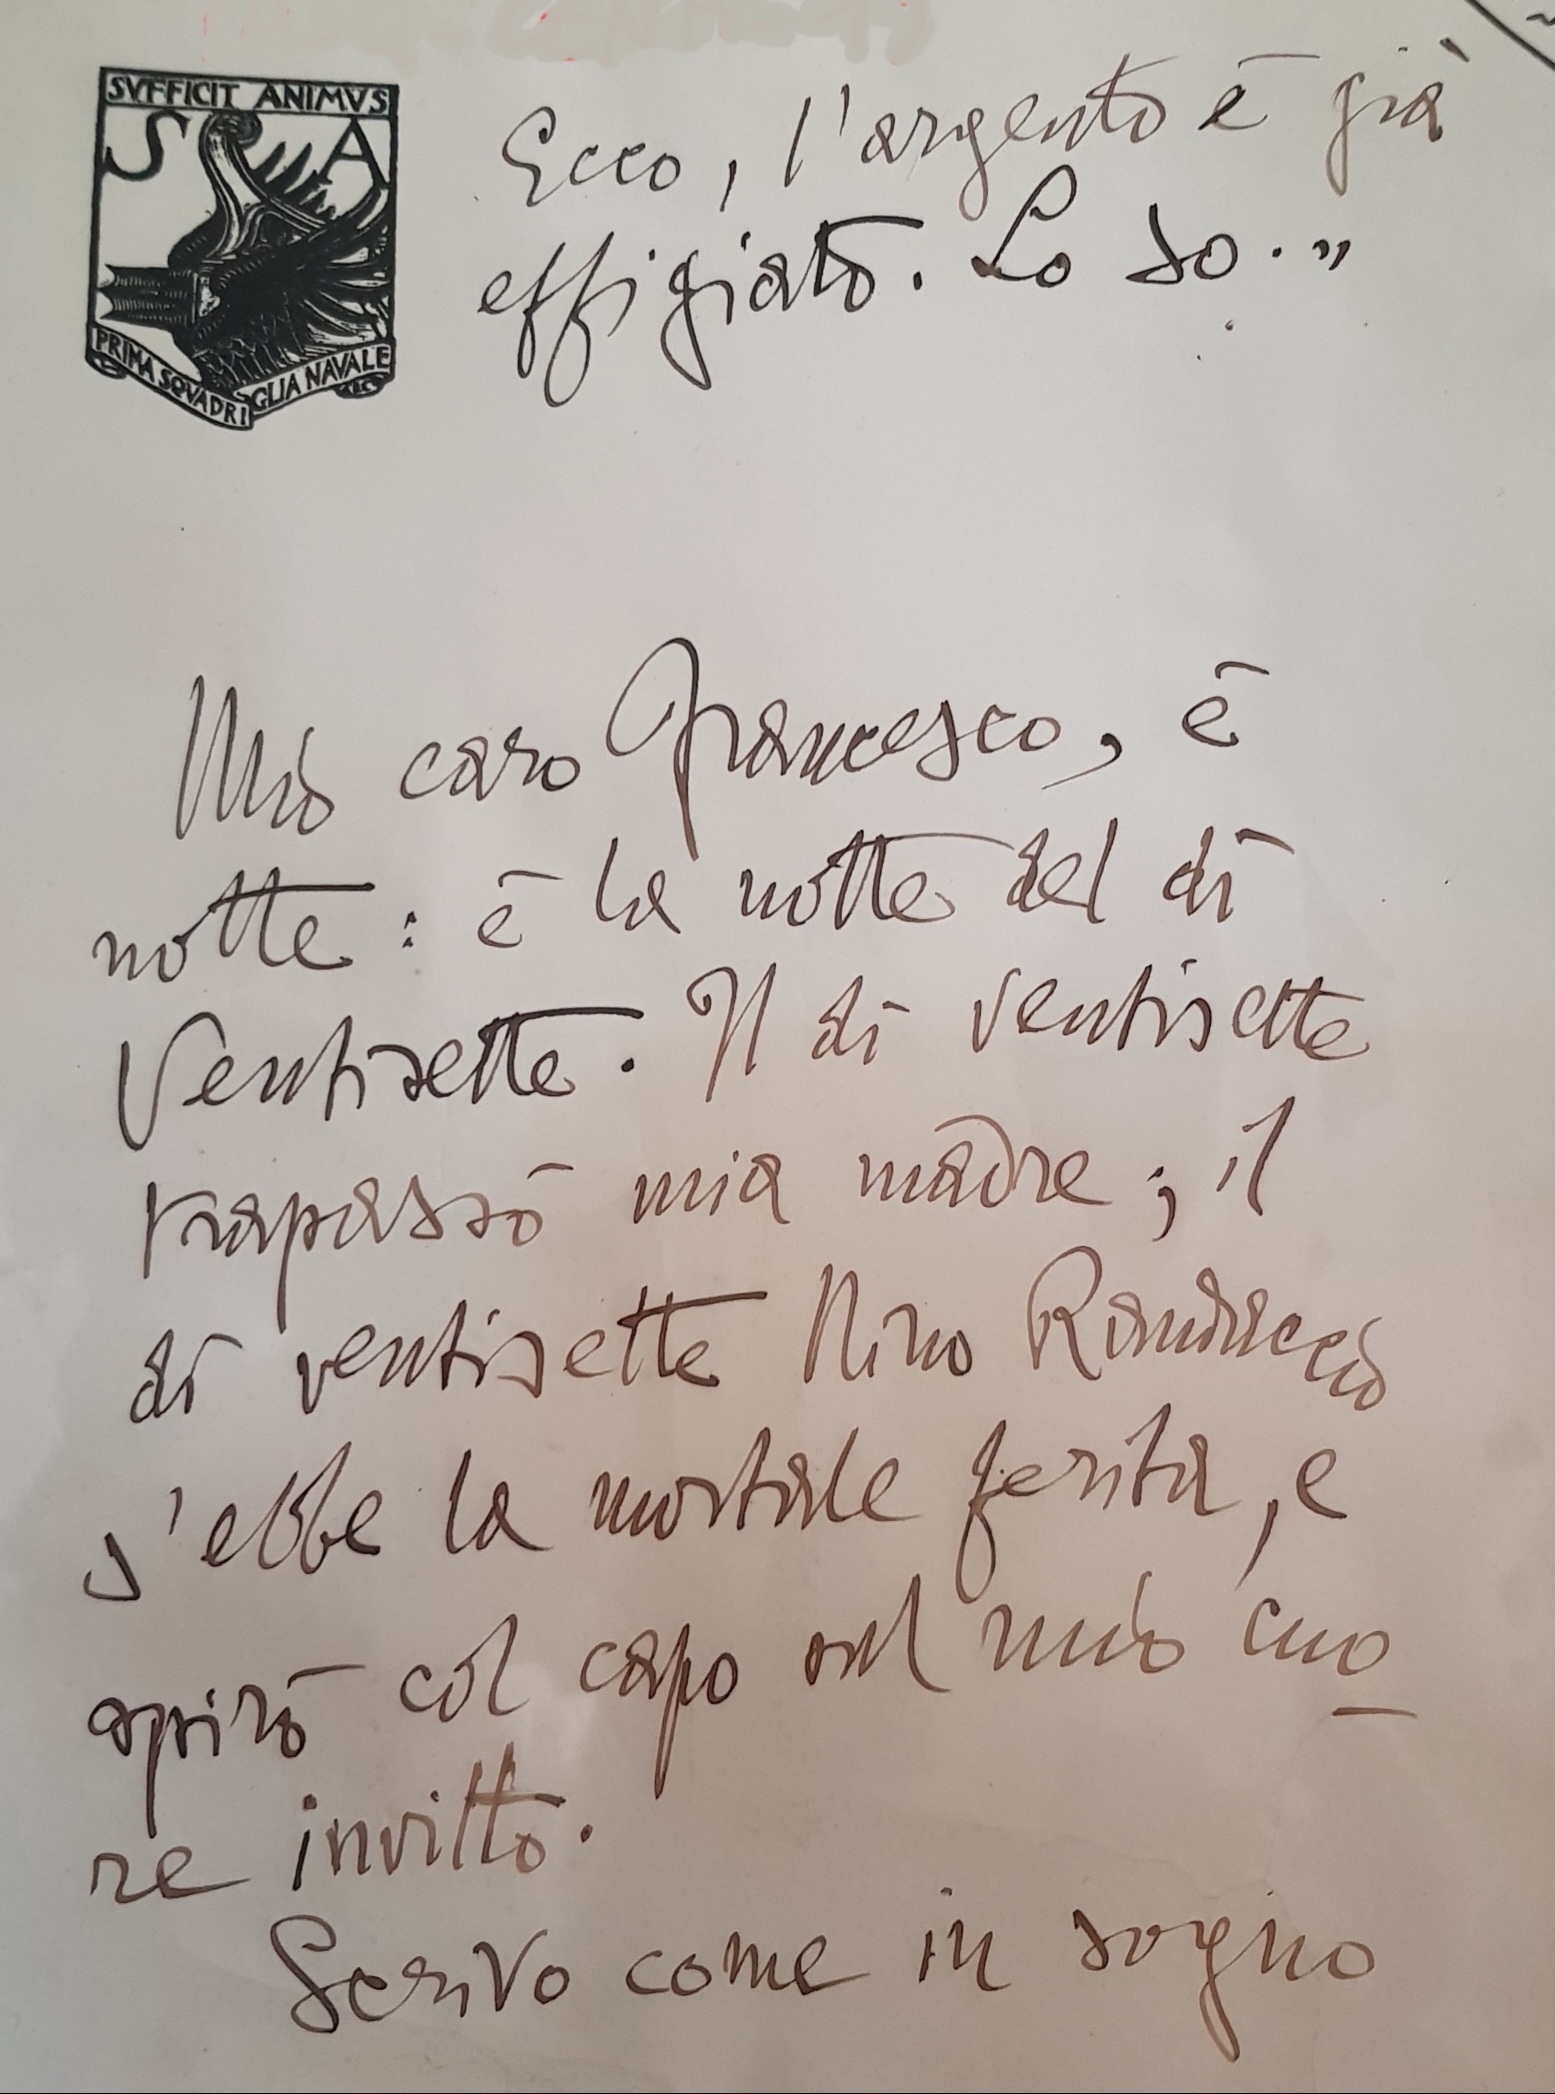 SVFFICIT ANIMVS
S A
PRIMA SQVADRI
GLIA NAVALE
Ecco, l'argento è già
effigiato. Lo so."
Mio caro Francesco, è
notte: è la notte del dì
Ventisette. Il dì ventisette
trapassò mia madre; il
dì ventisette Nino Randaccio
s'ebbe la mortale ferita, e
spirò col capo sul mio cuo
re invitto.
Scrivo come in sogno